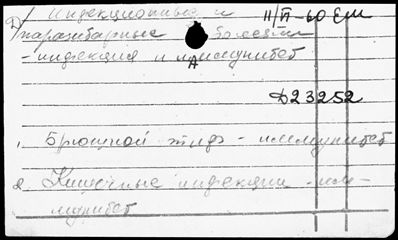 Д) Инфекционные и 11/VI-60 Еш
паразитарные болезни
- инфекция и иммунитет
Д23252
1. Брюшной тиф - иммунитет
2. Кишечные инфекции - им-
мунитет